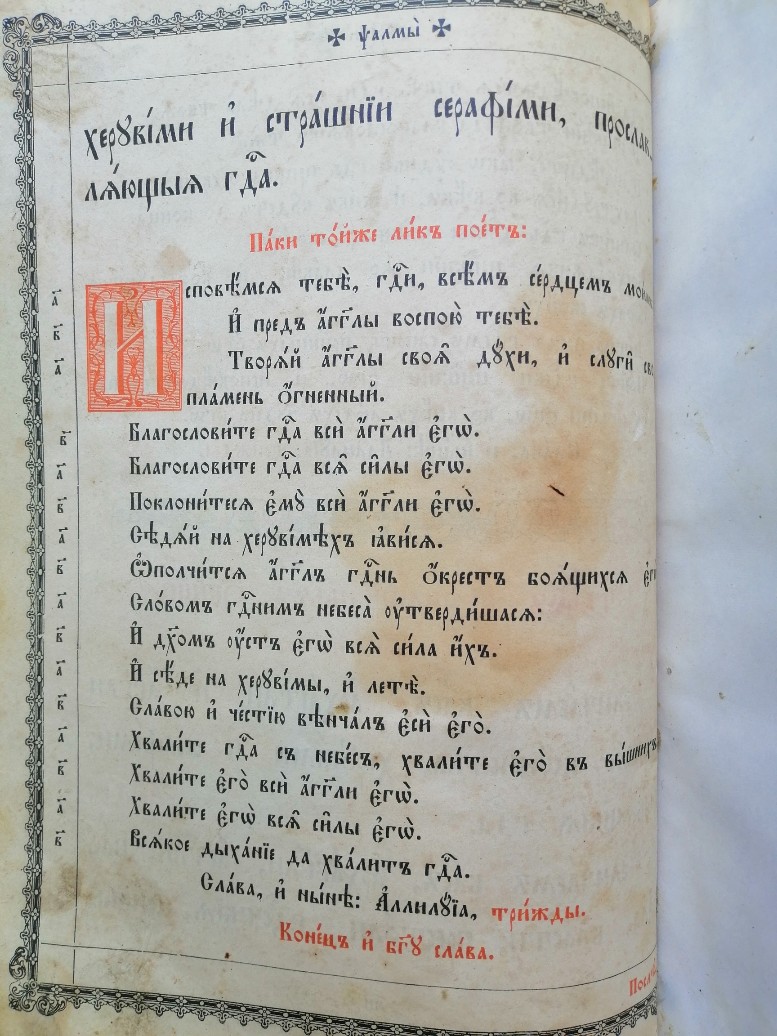 ✠ ѱалмы̀ ✠
херꙋві́ми и҆ стра́шнїи серафі́ми, просла́в-
лѧ́ющыѧ гдⷭ҇а.
Па́ки то́йже ли́къ пое́тъ:
И҆сповѣ́мсѧ тебѣ̀, гдⷭ҇и, всѣ́мъ се́рдцемъ
а҃
И҆ предъ а҆́гг҃лы воспою̀ тебѣ̀.
в҃
Творѧ́й а҆́гг҃лы своѧ̑ дꙋ́хи, и҆ слꙋги̑
а҃
пла́мень ѻ҆́гненный.
Благослови́те гдⷭ҇а всѝ а҆́гг҃ли є҆гѡ̀.
в҃
Благослови́те гдⷭ҇а всѧ̑ си̑лы є҆гѡ̀.
а҃
Поклони́тесѧ є҆мꙋ̀ всѝ а҆́гг҃ли є҆гѡ̀.
в҃
Сѣдѧ́й на херꙋві́мѣхъ ꙗ҆ви́сѧ.
а҃
Ѡ҆полчи́тсѧ а҆́гг҃лъ гдⷭ҇нь ѻ҆́крестъ боѧ́щихсѧ є҆гѡ̀
в҃
Сло́вомъ гдⷭ҇нимъ небеса̀ ᲂу҆тверди́шасѧ:
а҃
И҆ дх҃омъ ᲂу҆́стъ є҆гѡ̀ всѧ̀ си́ла и҆́хъ.
в҃
И҆ сѣ́де на херꙋві́мы, и҆ летѣ̀.
а҃
Сла́вою и҆ че́стїю вѣнча́лъ є҆сѝ є҆го̀.
в҃
Хвали́те гдⷭ҇а съ небе́съ, хвали́те є҆го̀ въ вы́шнихъ
а҃
Хвали́те є҆го̀ всѝ а҆́гг҃ли є҆гѡ̀.
в҃
Хвали́те є҆гѡ̀ всѧ̑ си̑лы є҆гѡ̀.
а҃
Всѧ́кое дыха́нїе да хва́литъ гдⷭ҇а.
в҃
Сла́ва, и҆ ны́нѣ: А҆ллилꙋ́їа, три́жды.
Коне́цъ и҆ бг҃ꙋ сла́ва.